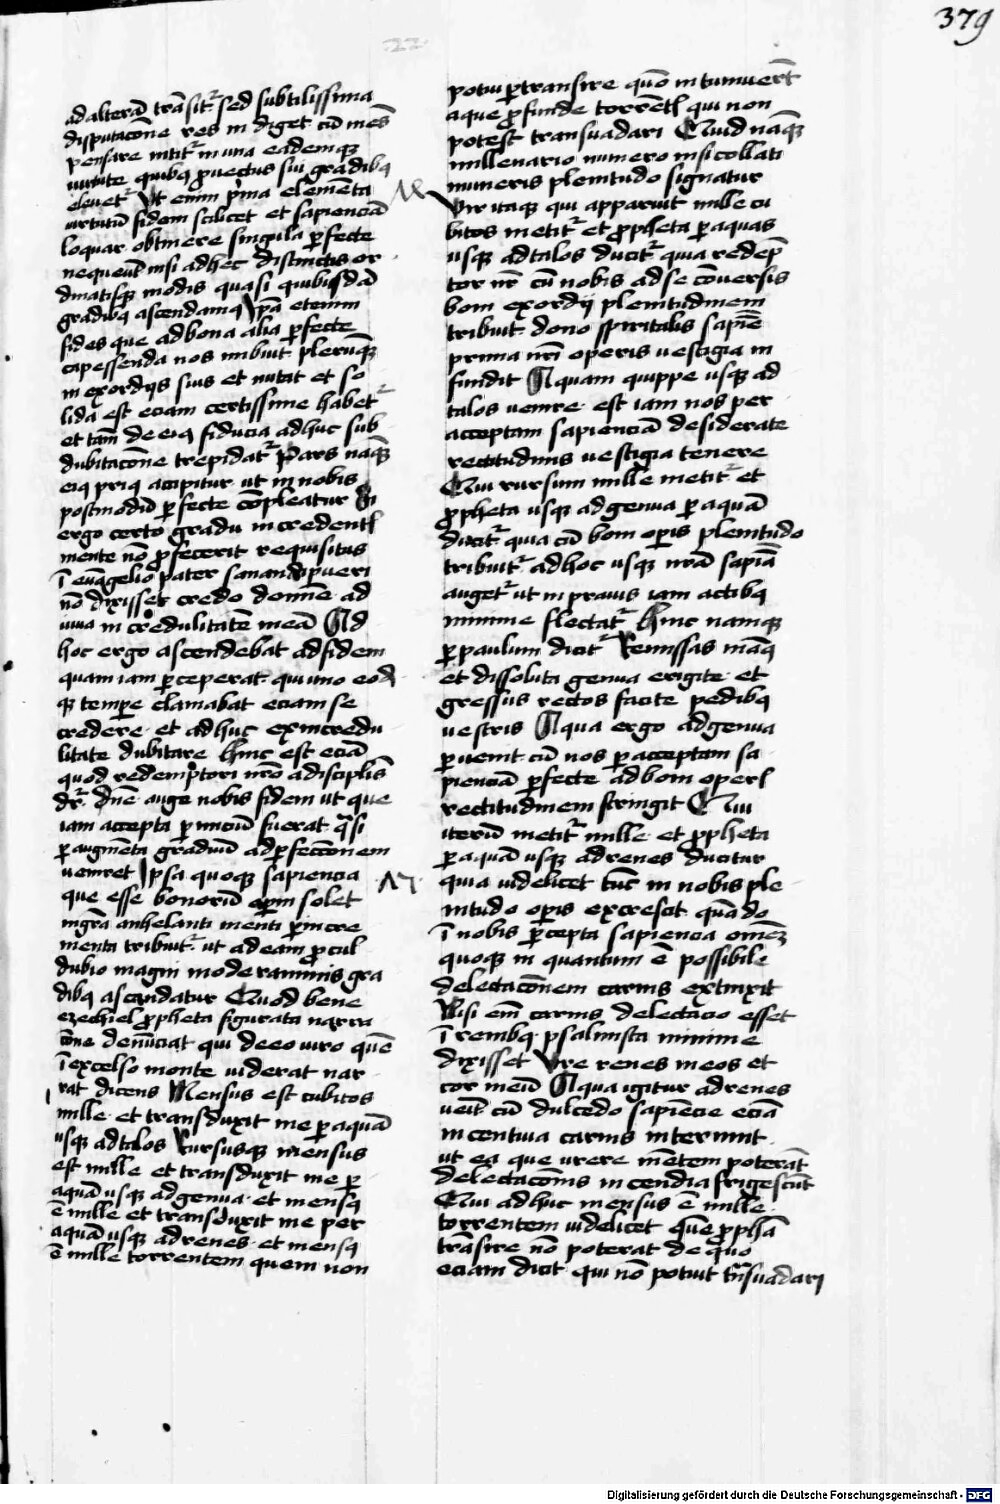 379
22
ad alterā trāsitᷣ sed subtilissima
disputacōne res in diget cū mēs
pensare nititᷣ in una eademqꝫ
uirtute quibꝰ ꝓuectus sui gradibꝰ
eleuetᷣ Ut enim p̄ma elemēta
uirtutū fidem scilicet et sapienciā
loquar obtinere singula ꝑfecte
nequeūt nisi ad hec distinctis or
dinatisqꝫ modis quasi quibusdā
gradibꝰ ascendamꝰ Ip̄a etenim
fides que ad bona alia ꝑfecte
capessenda nos imbuit plerūqꝫ
in exordijs suis et nutat et so
lida est eciam certissime habetᷣ
et tam̄ de eiꝰ fiducia adhuc sub
dubitacōne trepidatᷣ Pars nāqꝫ
eiꝰ priꝰ accipitur ut in nobis
postmodū ꝑfecte cōpleatur Si
ergo certo gradu in credentꝭ
mente nō ꝓfecerit requisitus
ī euāgelio pater sanandi pueri
nō dixisset credo domne ad
iuua in credulitatē meā Ad
hoc ergo ascendebat ad fidem
quam iam ꝑceperat qui uno eodē
qꝫ tempe clamabat eciam se
credere et adhuc ex incredu
litate dubitare Hinc est eciā
quod redemptori nr̄o a discipulis
dr̄ dn̄e auge nobis fidem ut que
iam accepta ꝑ iniciū fuerat q̄si
ꝑ augmēta graduū ad ꝑfeccōnem
ueniret Ipsa quoqꝫ sapiencia
que esse bonorū opm̄ solet
nigr̄a anhelanti menti ꝑ incre
menta tribuitᷣ ut ad eam ꝓcul
dubio magni moderaminis gra
dibꝰ ascendatur Quod bene
ezechiel ꝓpheta figurata narra
cōne denūciat qui de eo uiro quē
ī excelso monte uiderat nar
rat dicens Mensus est cubitos
mille et transduxit me ꝑ aquā
usqꝫ ad talos Rursusqꝫ mensus
est mille et transduxit me ꝑ
aquā usqꝫ ad genua et mensꝰ
ē mille et transduxit me per
aquā usqꝫ ad renes et mensꝰ
ē mille torrentem quem non
potui ꝑtransire quō intumuer̄t
aque ꝓfunde torrētꝭ qui non
potest transuadari Quid nāqꝫ
millenario numero nisi collati
muneris plenitudo signatur
Vir itaqꝫ qui apparuit mille cu
bitos metitᷣ et ꝓpheta ꝑ aquas
usqꝫ ad talos ducitᷣ quia redēp
tor nr̄ cū nobis ad se cōuersis
boni exordij plenitudinem
tribuit dono spiritalis sapiē
prima nr̄i operis uestigia in
fundit Aquam quippe usqꝫ ad
talos uenire est iam nos per
acceptam sapienciā desiderate
rectitudinis uestigia tenere
Qui rursum mille metitᷣ et
ꝓpheta usqꝫ ad genua ꝑ aquā
ducitᷣ quia cū boni opis plenitudo
tribuitᷣ ad hoc usqꝫ nr̄a sapiā
augetᷣ ut in prauis iam actibꝰ
minime flectatᷣ Hinc namqꝫ
ꝑ paulum dicit Remissas manꝰ
et dissoluta genua erigite et
gressus rectos facite pedibꝰ
uestris Aqua ergo ad genua
ꝑuenit cū nos ꝑ acceptam sa
pienciā ꝑfecte ad boni operꝭ
rectitudinem stringit Qui
iterū metitᷣ mille et ꝓpheta
ꝑ aquā usqꝫ ad renes ducitur
quia uidelicet tūc in nobis ple
nitudo opis excrescit quādo
ī nobis ꝑcepta sapiencia omēꝫ
quoqꝫ in quantum ē possibile
delectacōnem carnis extinxit
Nisi em̄ carnis delectacio esset
ī renibꝰ psalmista minime
dixisset Vre renes meos et
cor meū Aqua igitur ad renes
uēit cū dulcedo sapiēcie eciā
incentiua carnis interimit
ut ea que urere mētem poterāt
delectacōnis incendia frigescūt
Qui adhuc mensus ē mille
torrentem uidelicet quē ꝓphā
trāsire nō poterat de quo
eciam dicit qui nō potuit tr̄suadari
Digitalisierung gefördert durch die Deutsche Forschungsgemeinschaft - DFG